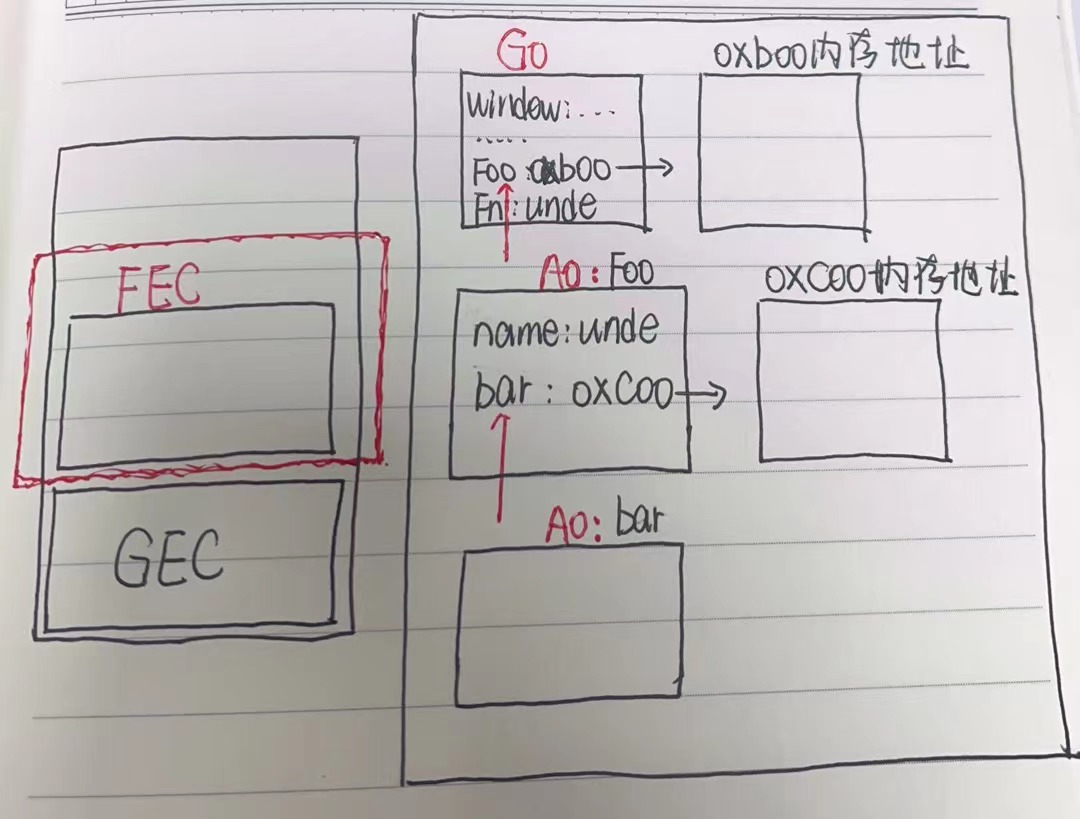 FEC
GEC
GO
window:...
.....
Foo:0xb00
Fn:unde
0xb00内存地址
AO:Foo
name:unde
bar:0xC00
0xC00内存地址
AO:bar